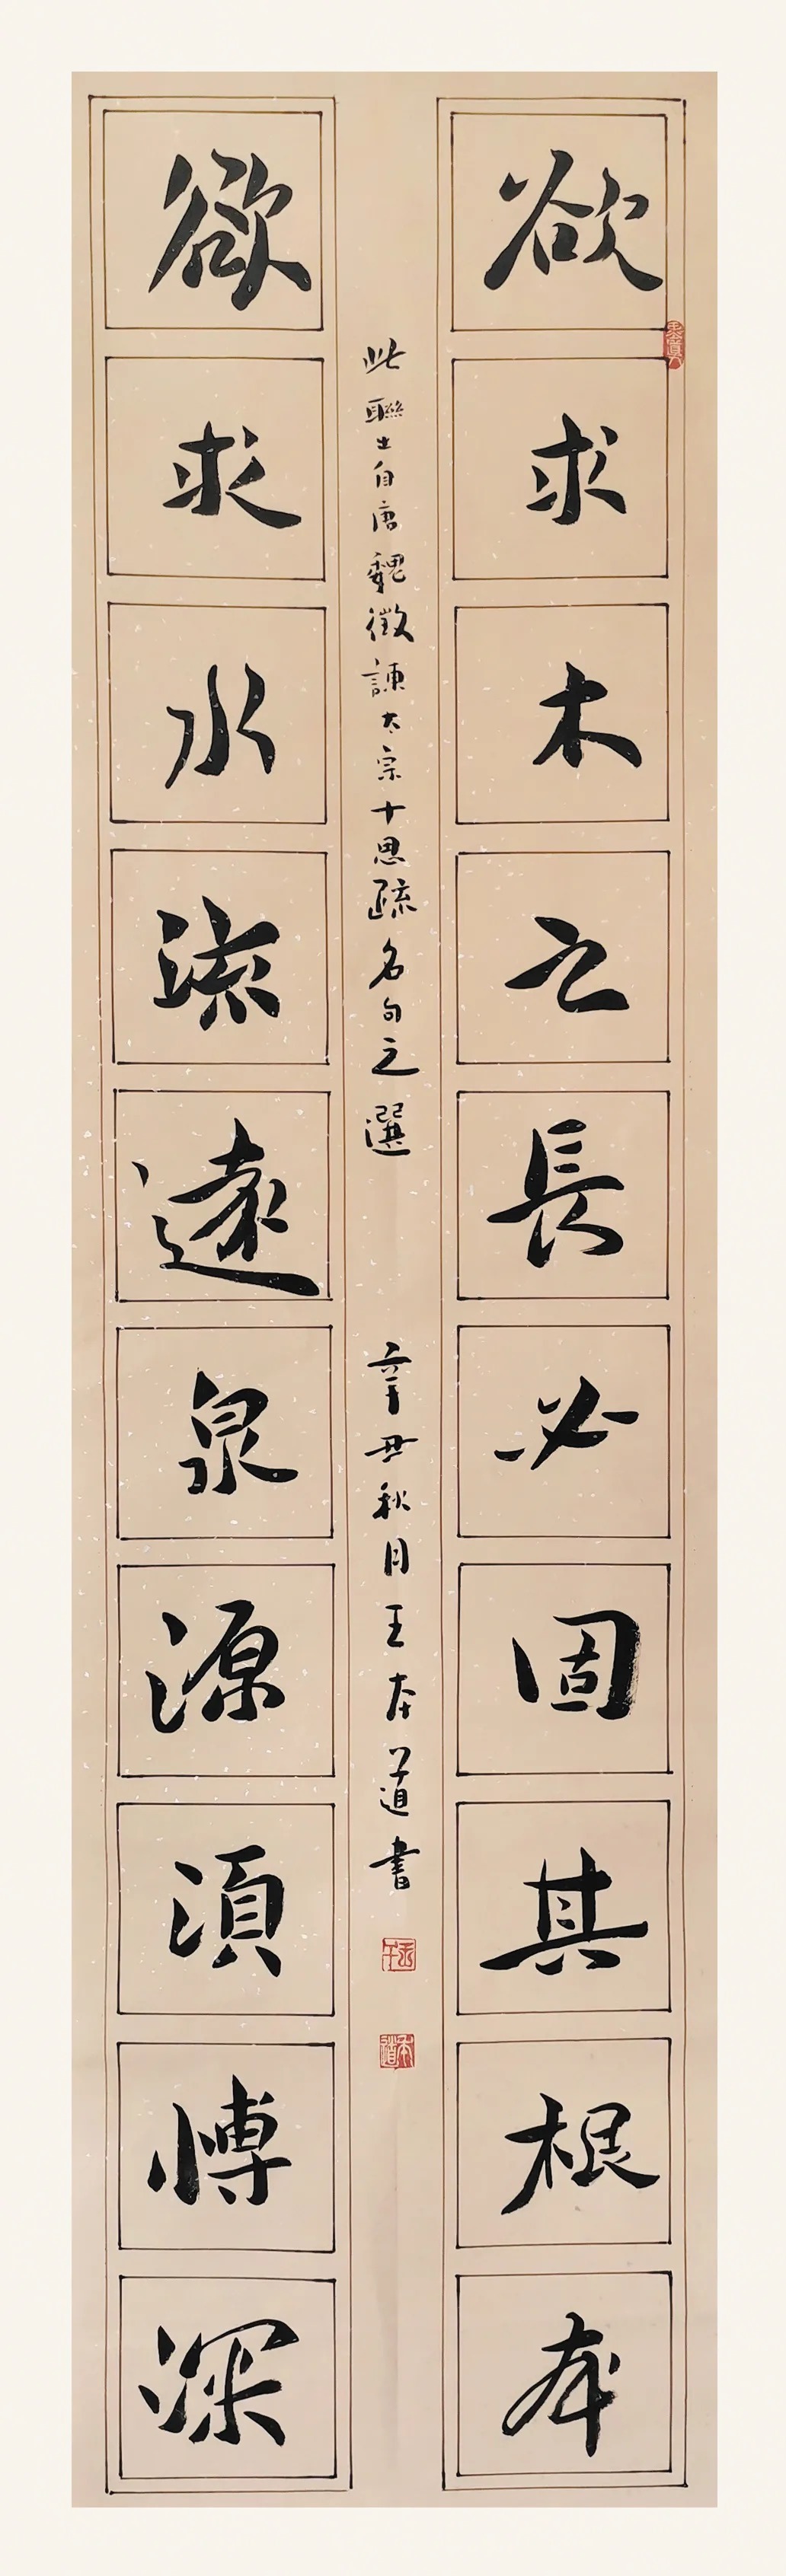 欲求木之長必固其根本
欲求水流遠泉源須博深
此聯出自唐魏徵諫太宗十思疏名句之選
辛丑秋月王本道書